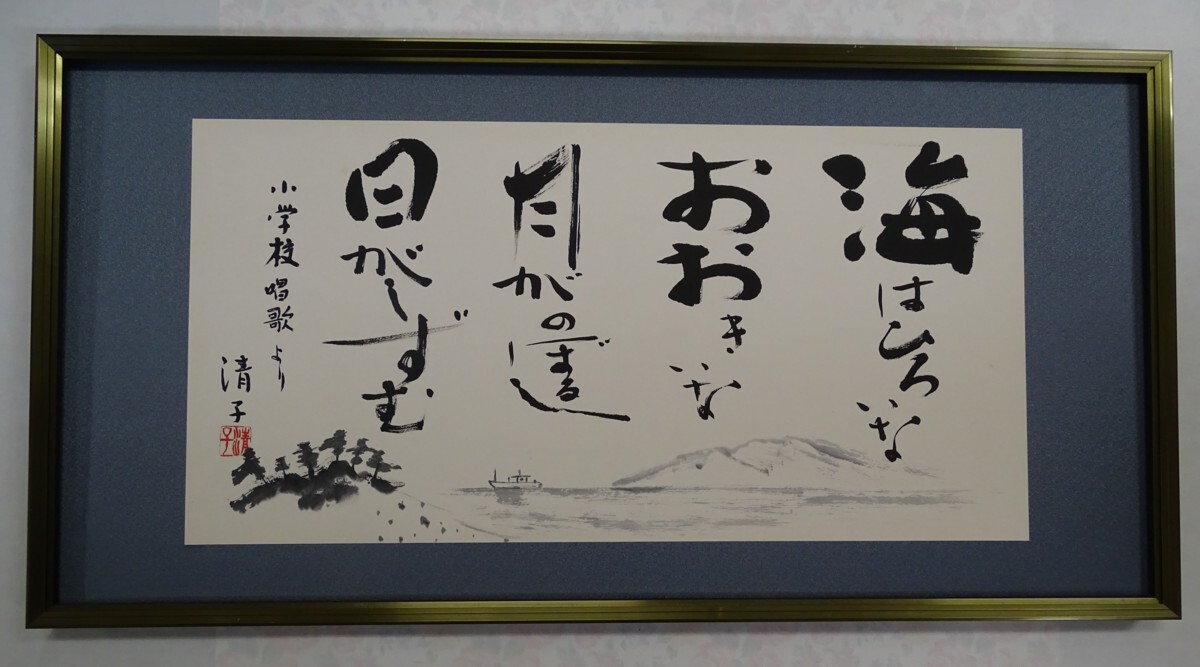 海はひろいな
おおきいな
月がのぼるし
日がしずむ
小学校唱歌より
清子
清子